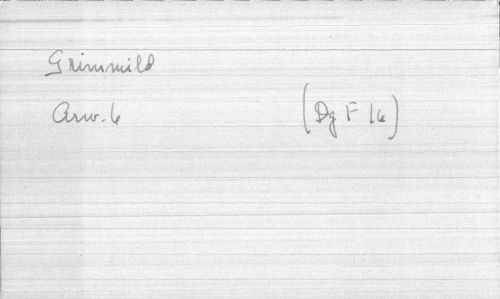 Grimmild
Arw. 6 (Dg F 16)